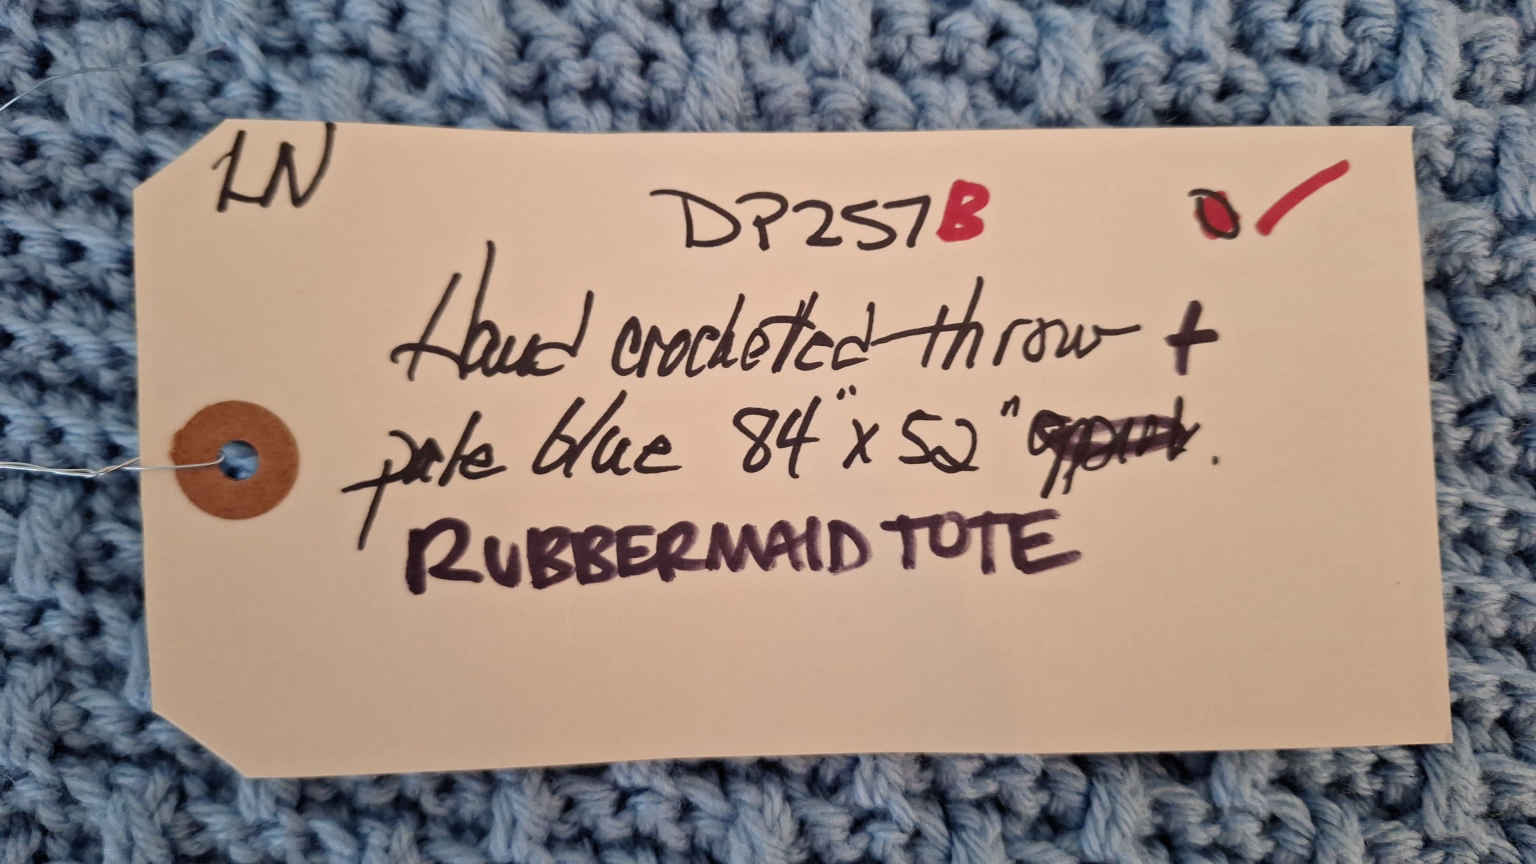 LN
DP257B
Hand crocheted throw +
pale blue 84" x 52" .
RUBBERMAID TOTE